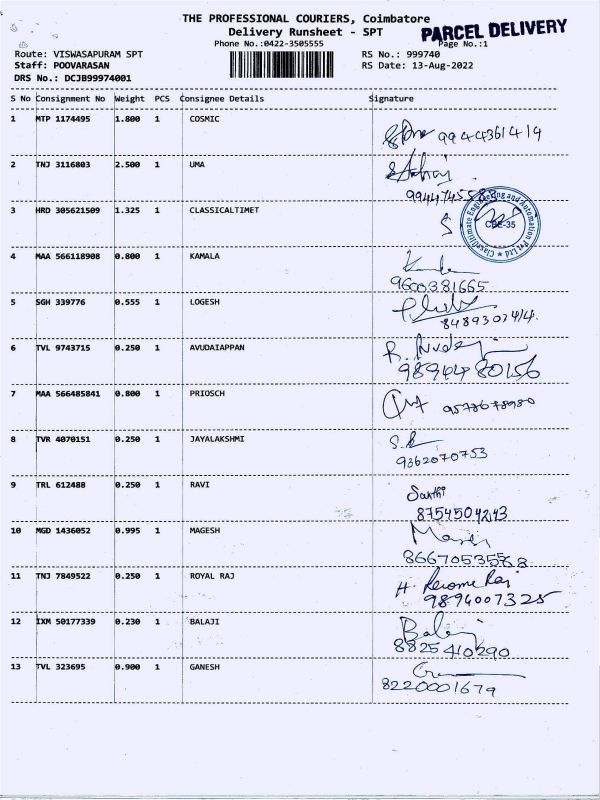 THE PROFESSIONAL COURIERS, Coimbatore
Delivery Runsheet - SPT
PARCEL DELIVERY
Phone No.:0422-3505555
Page No.:1
Route: VISWASAPURAM SPT
RS No.: 999740
Staff: POOVARASAN
RS Date: 13-Aug-2022
DRS No.: DCJB99974001
S No Consignment No Weight PCS Consignee Details Signature
1 MTP 1174495 1.800 1 COSMIC
9944361419
2 TNJ 3116803 2.500 1 UMA
3 HRD 305621509 1.325 1 CLASSICALTIMET
Engineering and Automation Pvt Ltd
CBE-35
4 MAA 566118908 0.800 1 KAMALA
9600381665
5 SGH 339776 0.555 1 LOGESH
6 TVL 9743715 0.250 1 AVUDAIAPPAN
7 MAA 566485841 0.800 1 PRIOSCH
8 TVR 4070151 0.250 1 JAYALAKSHMI
9362070753
9 TRL 612488 0.250 1 RAVI
Sakthi
8754504243
10 MGD 1436052 0.995 1 MAGESH
11 TNJ 7849522 0.250 1 ROYAL RAJ
H. Jerome Raj
9894007325
12 IXM 50177339 0.230 1 BALAJI
Balaji
8825410290
13 TVL 323695 0.900 1 GANESH
8220001679